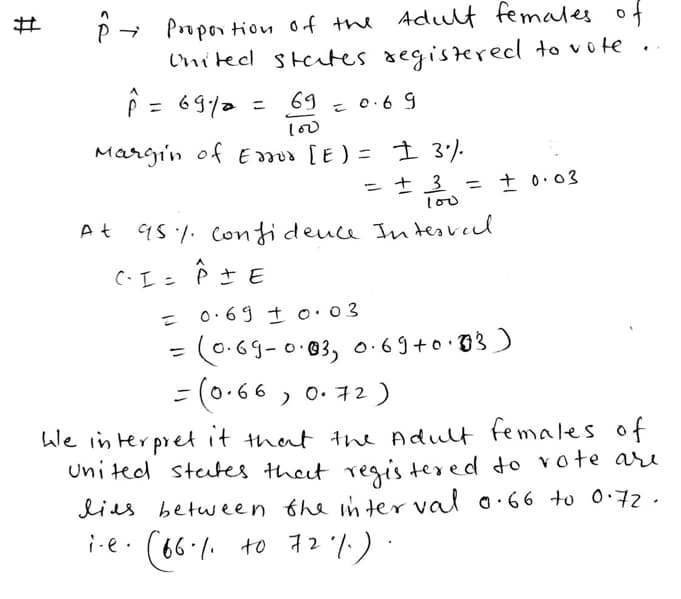 # p̂ → Proportion of the Adult females of
United States registered to vote .
p̂ = 69% = 69/100 = 0.69
Margin of Error [E) = ± 3%
= ± 3/100 = ± 0.03
At 95% confidence Interval
C.I = p̂ ± E
= 0.69 ± 0.03
= (0.69-0.03, 0.69+0.03)
= (0.66, 0.72)
We interpret it that the Adult females of
United states that registered to vote are
lies between the interval 0.66 to 0.72.
i.e. (66% to 72%).